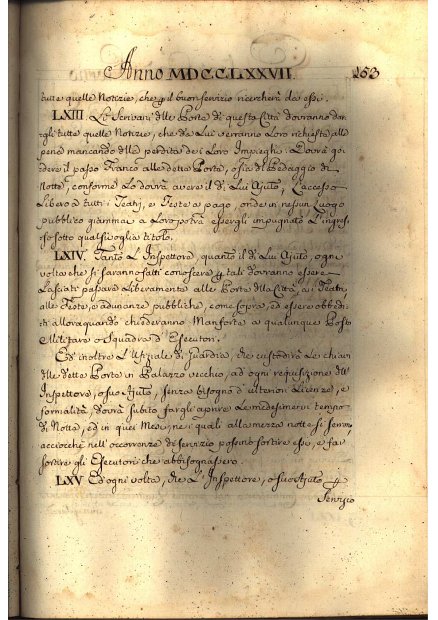 Anno MDCCLXXVII. 153
tutte quelle Notizie, che p il buon servizio ricercherà da essi.
LXIII. Li Scrivani dlle Porte di questa Città dovranno dar=
gli tutte quelle Notizie, che da Lui verranno Loro richieste alla
pena mancando dlla perdita de i Loro Impieghi. Dovrà go=
dere il passo Franco alle dette Porte, o sia di Pedaggio di
Notte, conforme Lo dovrà avere il di Lui Ajuto, L'accesso
Libero a tutti i Teatri, e Feste a pago, onde in nessun Luogo
pubblico giammai a Loro potrà essergli impugnato L'ingres=
so sotto qualsivoglia titolo.
LXIV. Tanto L'Inspettore, quanto il di Lui Ajuto, ogni
volta che si saranno fatti conoscere p tali dovranno essere
Lasciati passare Liberamente alle Porte dlla Città, a i Teatri
alle Feste, e adunanze pubbliche, come sopra, ed essere obbedi=
ti allora quando chiederanno Manforte a qualunque Posto
Militare o Squadra d'Esecutori.
Ed inoltre L'Ufiziale di Guardia, che custodirà Le chiavi
dlle dette Porte in Palazzo vecchio, ad ogni requisizione dll'
Inspettore, o suo Ajuto, senza bisogno d'ulteriori Licenze, e
formalità, dovrà subito fargli aprire Le medesime in tempo
di Notte, ed in quei Mesi, ne i quali alla mezza notte si serrano
acciocchè nell'occorrenze di servizio possino sortire essi, e far
sortire gli Esecutori che abbisognassero.
LXV Ed ogni volta, che L'Inspettore, o suo Ajuto p
Servizio